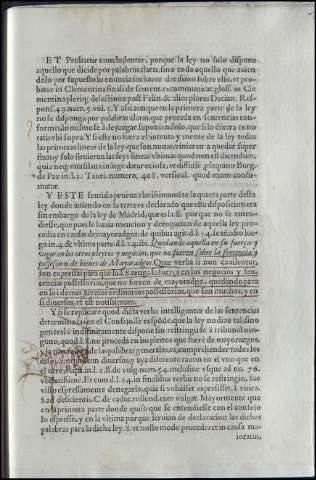 ET Probatur concludenter, porque la ley no solo dispone
aquello que dicide por palabras claras, sino todo aquello que auien
dolo por supuesto lo enuncia sin hazer decission sobre ello, vt pro-
batur in Clementina sin si de sentent. excommunicat. gloss. in Cle
mentina plerique de lactione post Felin. & alios plures Decian. Res-
pons. 49. num. 5. vol. 3. Y assi aunque en la primera parte de la ley
no se disponga por palabras claras, que proceda en sentencias con-
forme al mismo se à de juzgar, suponiendolo, que si lo dixera
vt supra. Y si esto no fuera el intento y mente de la ley todas
las primeras lineas de la ley, que son nueue, vinieran a quedar super
fluas, y solo siruieran las seys lineas vltimas quod non est dicendum,
quia neque vna silaua in lege datur ociosa, vt diffusè prosequitur Burg.
de Paz in l. 2. Tauri. numero, 408. versicul. quod etiam confir-
matur.
Y ESTE sentido prueua clarissimamente la quarta parte desta
ley donde auiendo en la tercera declarado que esta disposicion era
sin embargo de la ley de Madrid, que es la 8. porque no se enten-
diesse, que pues le hazia mencion y derogacion de aquella ley pro-
cedia en causas de mayorazgos de quibus agit d. l. 14. se añadio lue-
go in 4. & vltima parte d. l. 14. ibi. Quedando aquella en su fuerça y
vigor en los otros pleytos y negocios, que no fueren sobre la sentencia, y
possession de bienes de Mayorazgos. Que verba si non confundor,
son expressas para que la l. 8. tenga su fuerça en los negocios y sen-
tencias possessorias, que no fueren de mayorazgo, quedando para
en los demas juyzios ordinarios possessorios, que son muchos, y en
si diuersos, vt est notissimum.
Y si se replicare quod dicta verba intelligantur de las sentencias
determinadas en el Consejo, se responde, que la ley no dize tal, sino
general e indistinctamente dispone sin restringirse à tribunal nin-
guno, quod l. 8. no proceda en los pleytos que fueren de mayorazgos,
y la naturaleza de las palabras generales, comprehender todos los
casos, aunque sean diuersos, y aya differente razon en el vno que en
el otro, Ripa in l. 1. ff. de vulg. num. 54. melius vsque ad nu. 76.
Et cum d. l. 14. in finalibus verbis no se restringio, fue
visto expressamente denegarlo, quia si voluisset expressisset. l. vnica.
§. ad deficientis. C. de caduc. tollend. cum vulgat. Mayormente que
en la primera parte donde quiso que se entendiesse con el consejo
lo expresso, y en la vltima porque seruian de declaracion las dichas
palabras para la dicha ley. 8. vt nullo modo procederet in causa ma
ioratus,